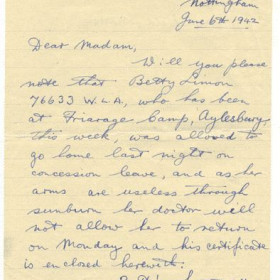 Nottingham
June 6th 1942
Dear Madam,
Will you please
note that Betty Limon
76633 W.L.A, who has been
at Friarage Camp, Aylesbury
this week, was allowed to
go home last night on
concession leave, and as her
arms are useless through
sunburn her doctor will
not allow her to return
on Monday and his certificate
is enclosed herewith.